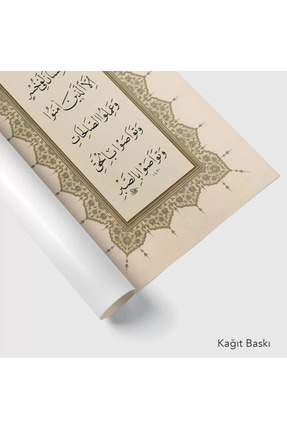 إلا الذين آمنوا
وعملوا الصالحات
وتواصوا بالحق
وتواصوا بالصبر
Kağıt Baskı